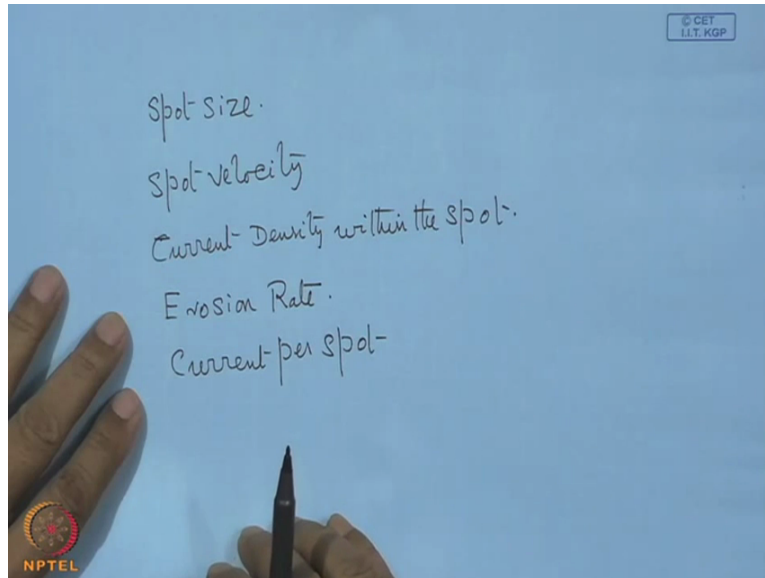 © CET
I.I.T. KGP
Spot size.
Spot velocity
Current Density within the spot.
Erosion Rate.
Current per spot
NPTEL